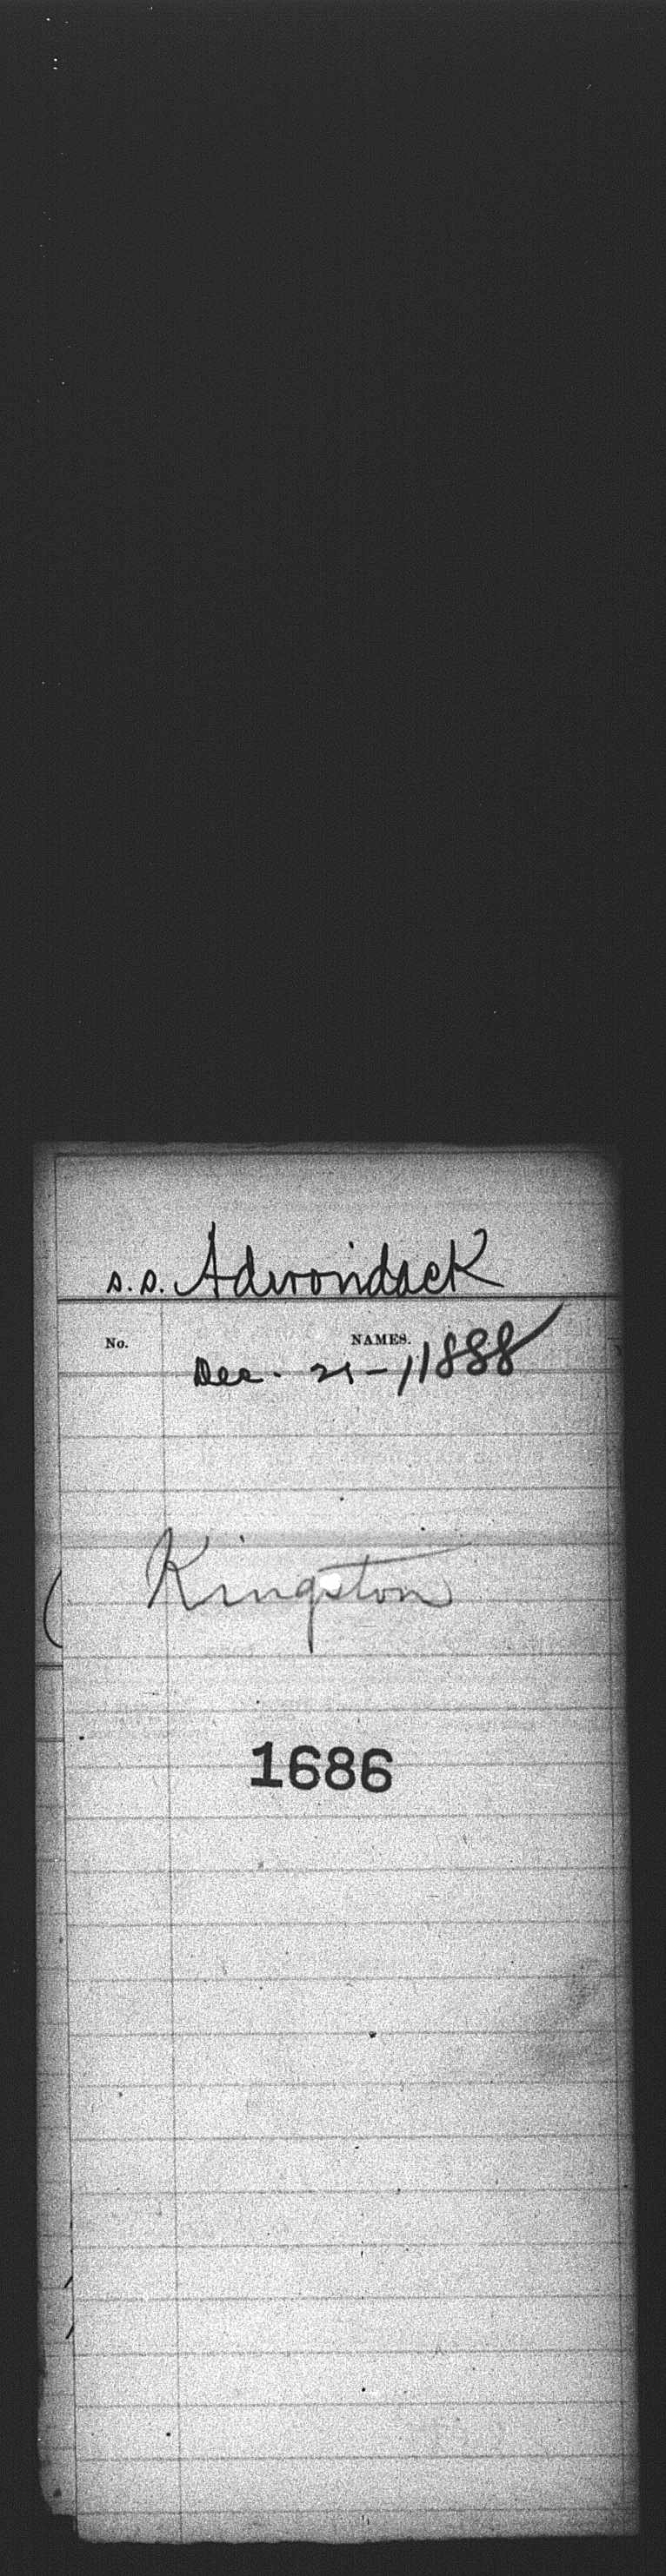 s.s. Adirondack
No. NAMES.
Dec. 21-/1888
Kingston
1686